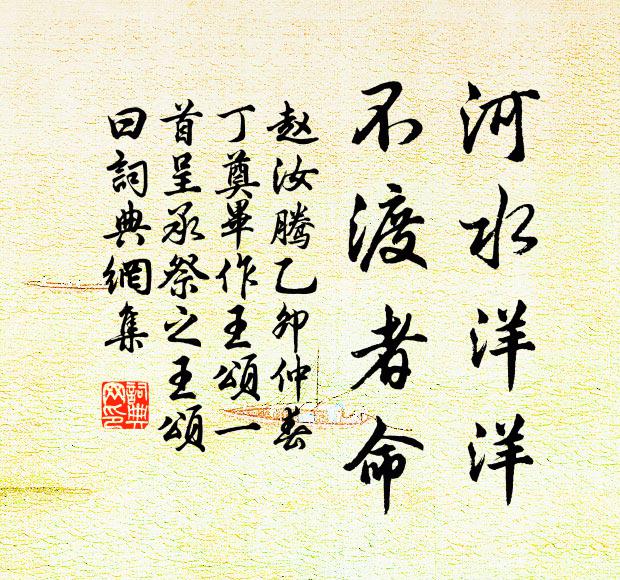 河水洋洋
不渡者命
赵汝腾乙卯仲春
丁奠毕作王颂一
首呈承祭之王颂
曰詞典網集
詞典网印